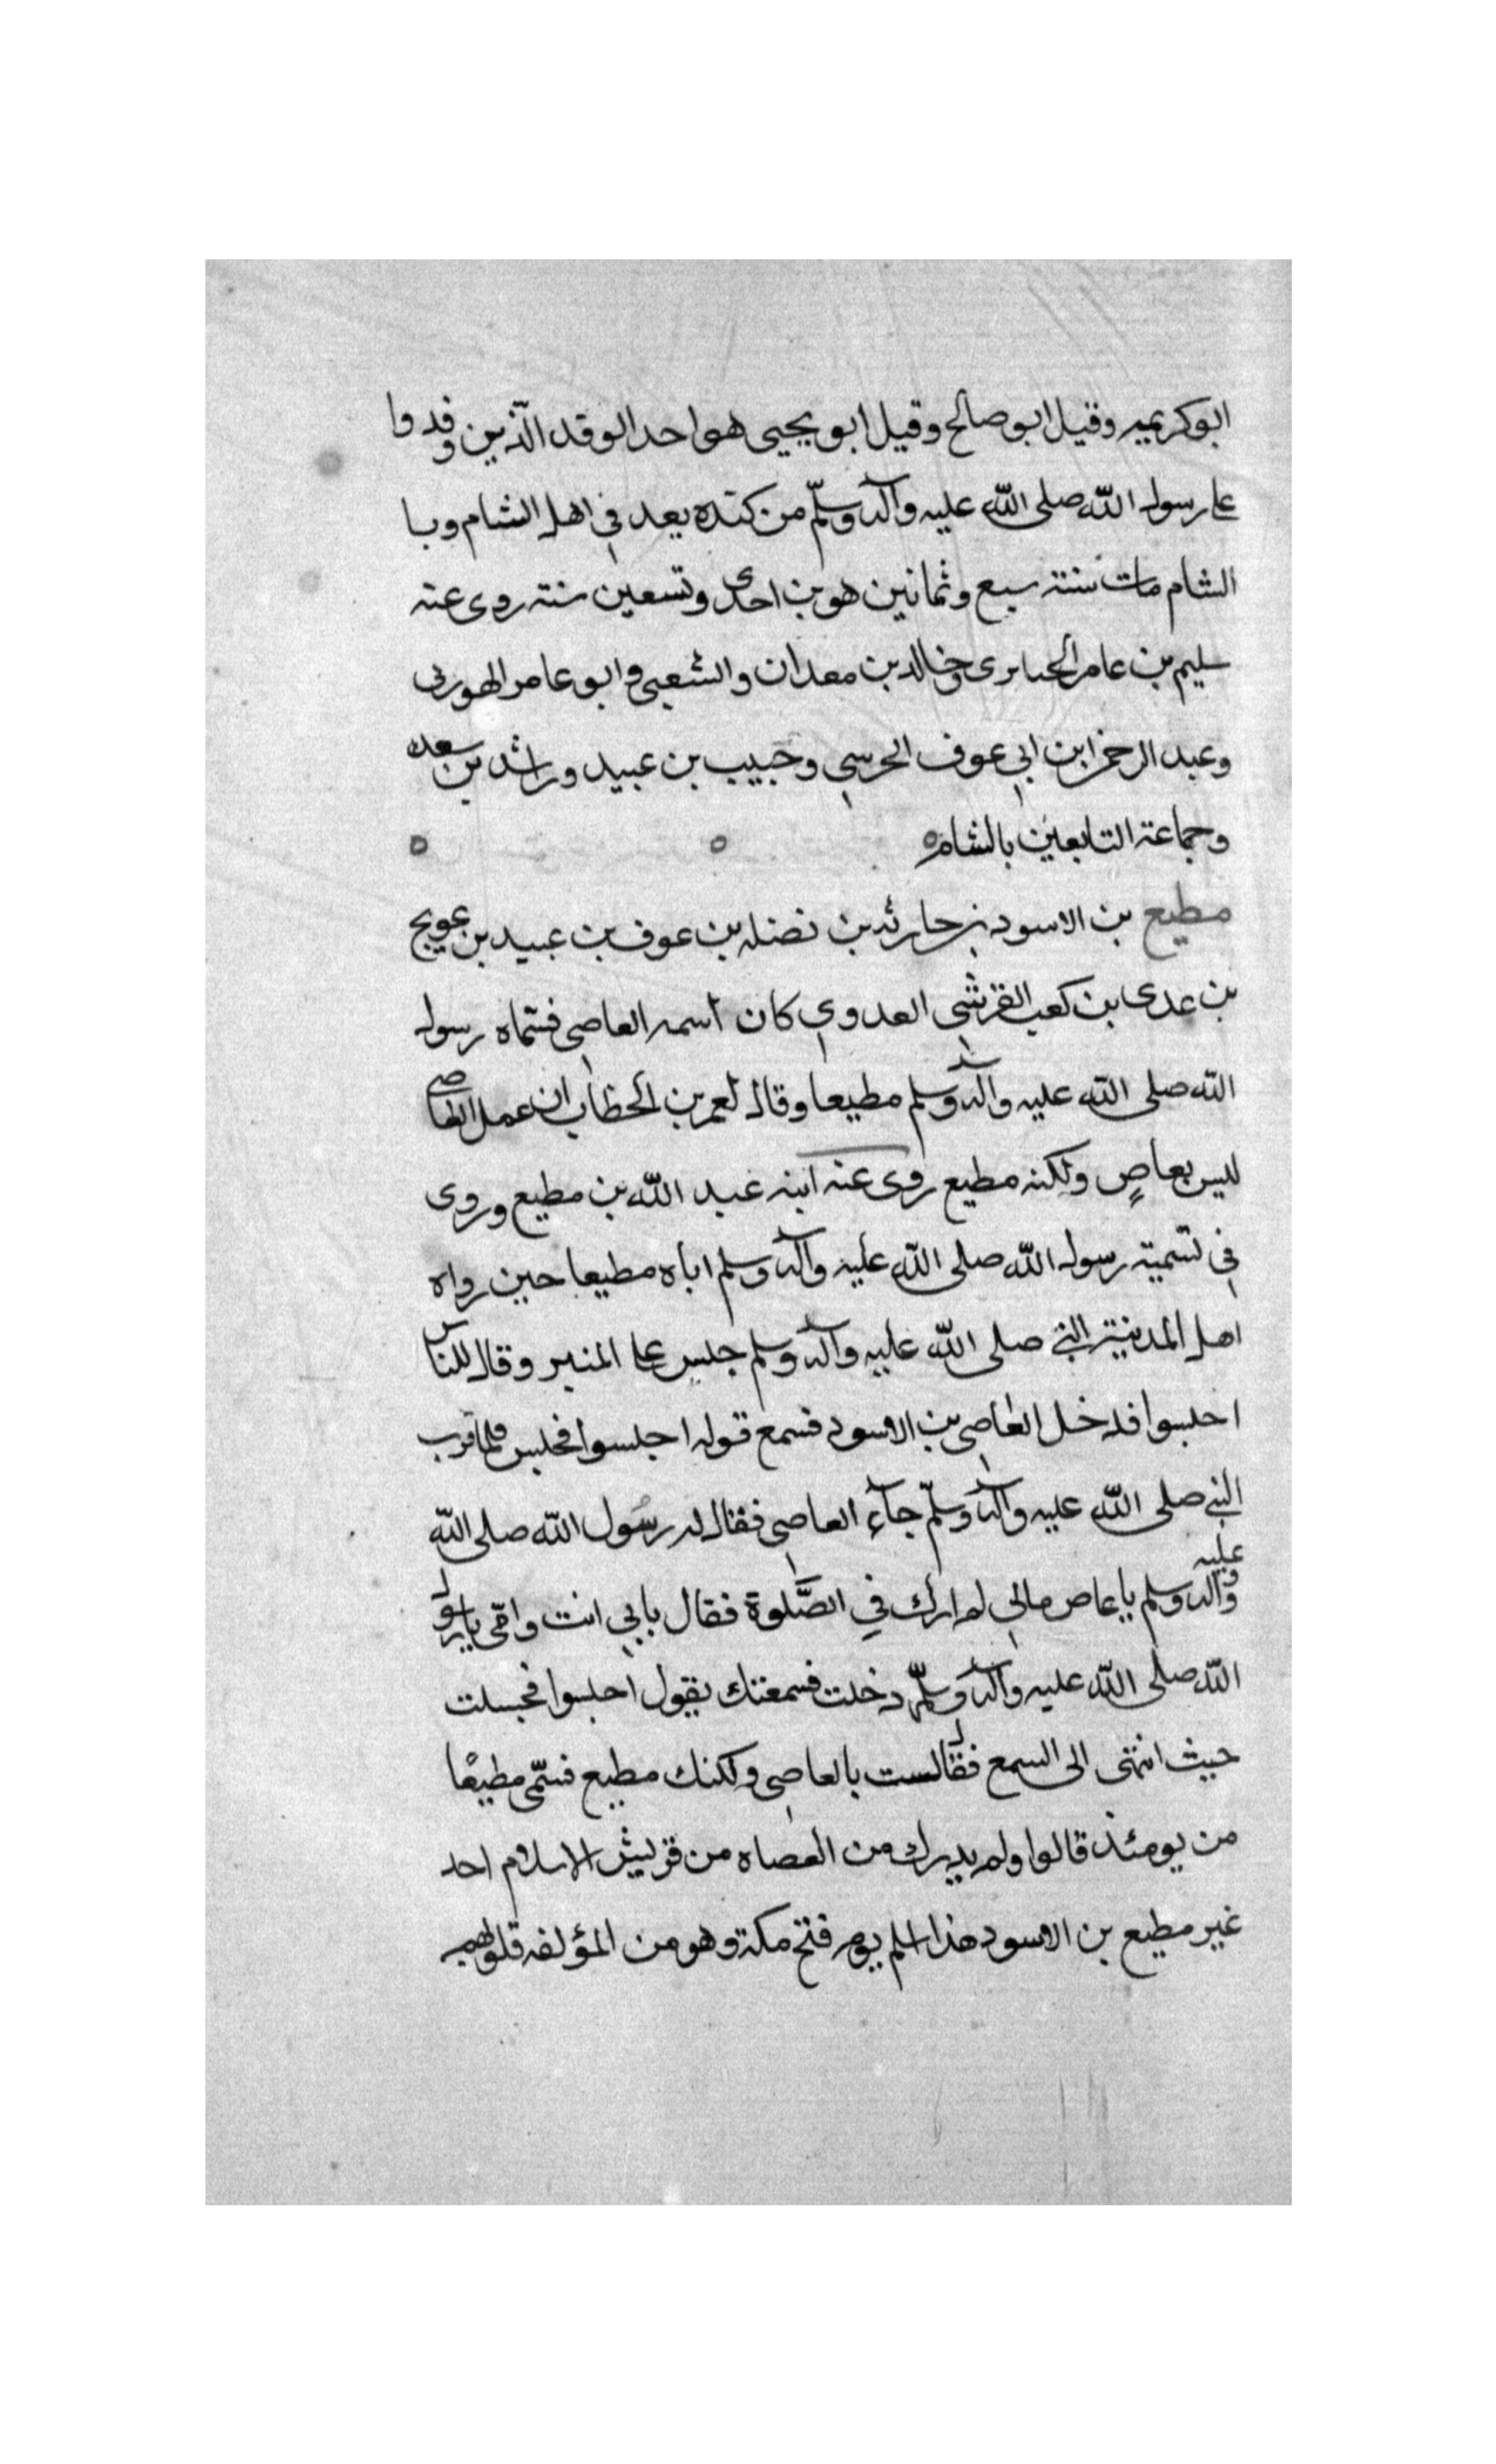 ابوكريمه وقيل ابو صالح وقيل ابو يحيى هو احد الوفد الّذين وفدوا
على رسول اللّه صلى اللّه عليه وآله وسلّم من كنده يعد في اهل الشام وبا
الشام مات سنة سبع وثمانين هو بن احدى وتسعين سنة روى عنه
سليم بن عامر الحبايرى وخالد بن معدان والشعبي وابو عامر الهوزنى
وعبد الرحمن ابن ابي عوف الحرسي وحبيب بن عبيد وراشد بن سعد
وجماعة التابعين بالشام
مطيع بن الاسود بن حارثه بن نضله بن عوف بن عبيد بن عويج
بن عدى بن كعب القرشي العدوي كان اسمه العاصي فسماه رسول
اللّه صلى اللّه عليه وآله وسلم مطيعا وقال لعمر بن الخطاب ان عمل العاصي
ليس بعاصٍ ولكنه مطيع روى عنه ابنه عبد اللّه بن مطيع وروى
في تسمية رسول اللّه صلى اللّه عليه وآله وسلم اباه مطيعا حين رواه
اهل المدينة النبي صلى اللّه عليه وآله وسلم جلس على المنبر وقال للناس
اجلسوا فدخل العاصي بن الاسود فسمع قوله اجلسوا فجلس فلما قرب
النبي صلى اللّه عليه وآله وسلّم جآء العاصي فقال له رسول اللّه صلى اللّه عليه
وآله وسلم يا عاص مالي لم ارك في الصّلوة فقال بابي انت وامّي يا رسول
اللّه صلى اللّه عليه وآله وسلّم دخلت فسمعتك يقول اجلسوا فجسلت
حيث انتهى الى السمع فقال لست بالعاصي ولكنك مطيع فسمّى مطيعًا
من يومئذ قالوا ولم يدرك من العصاه من قريش الاسلام احد
غير مطيع بن الاسود هذا اسلم يوم فتح مكة وهو من المؤلفه قلوبهم